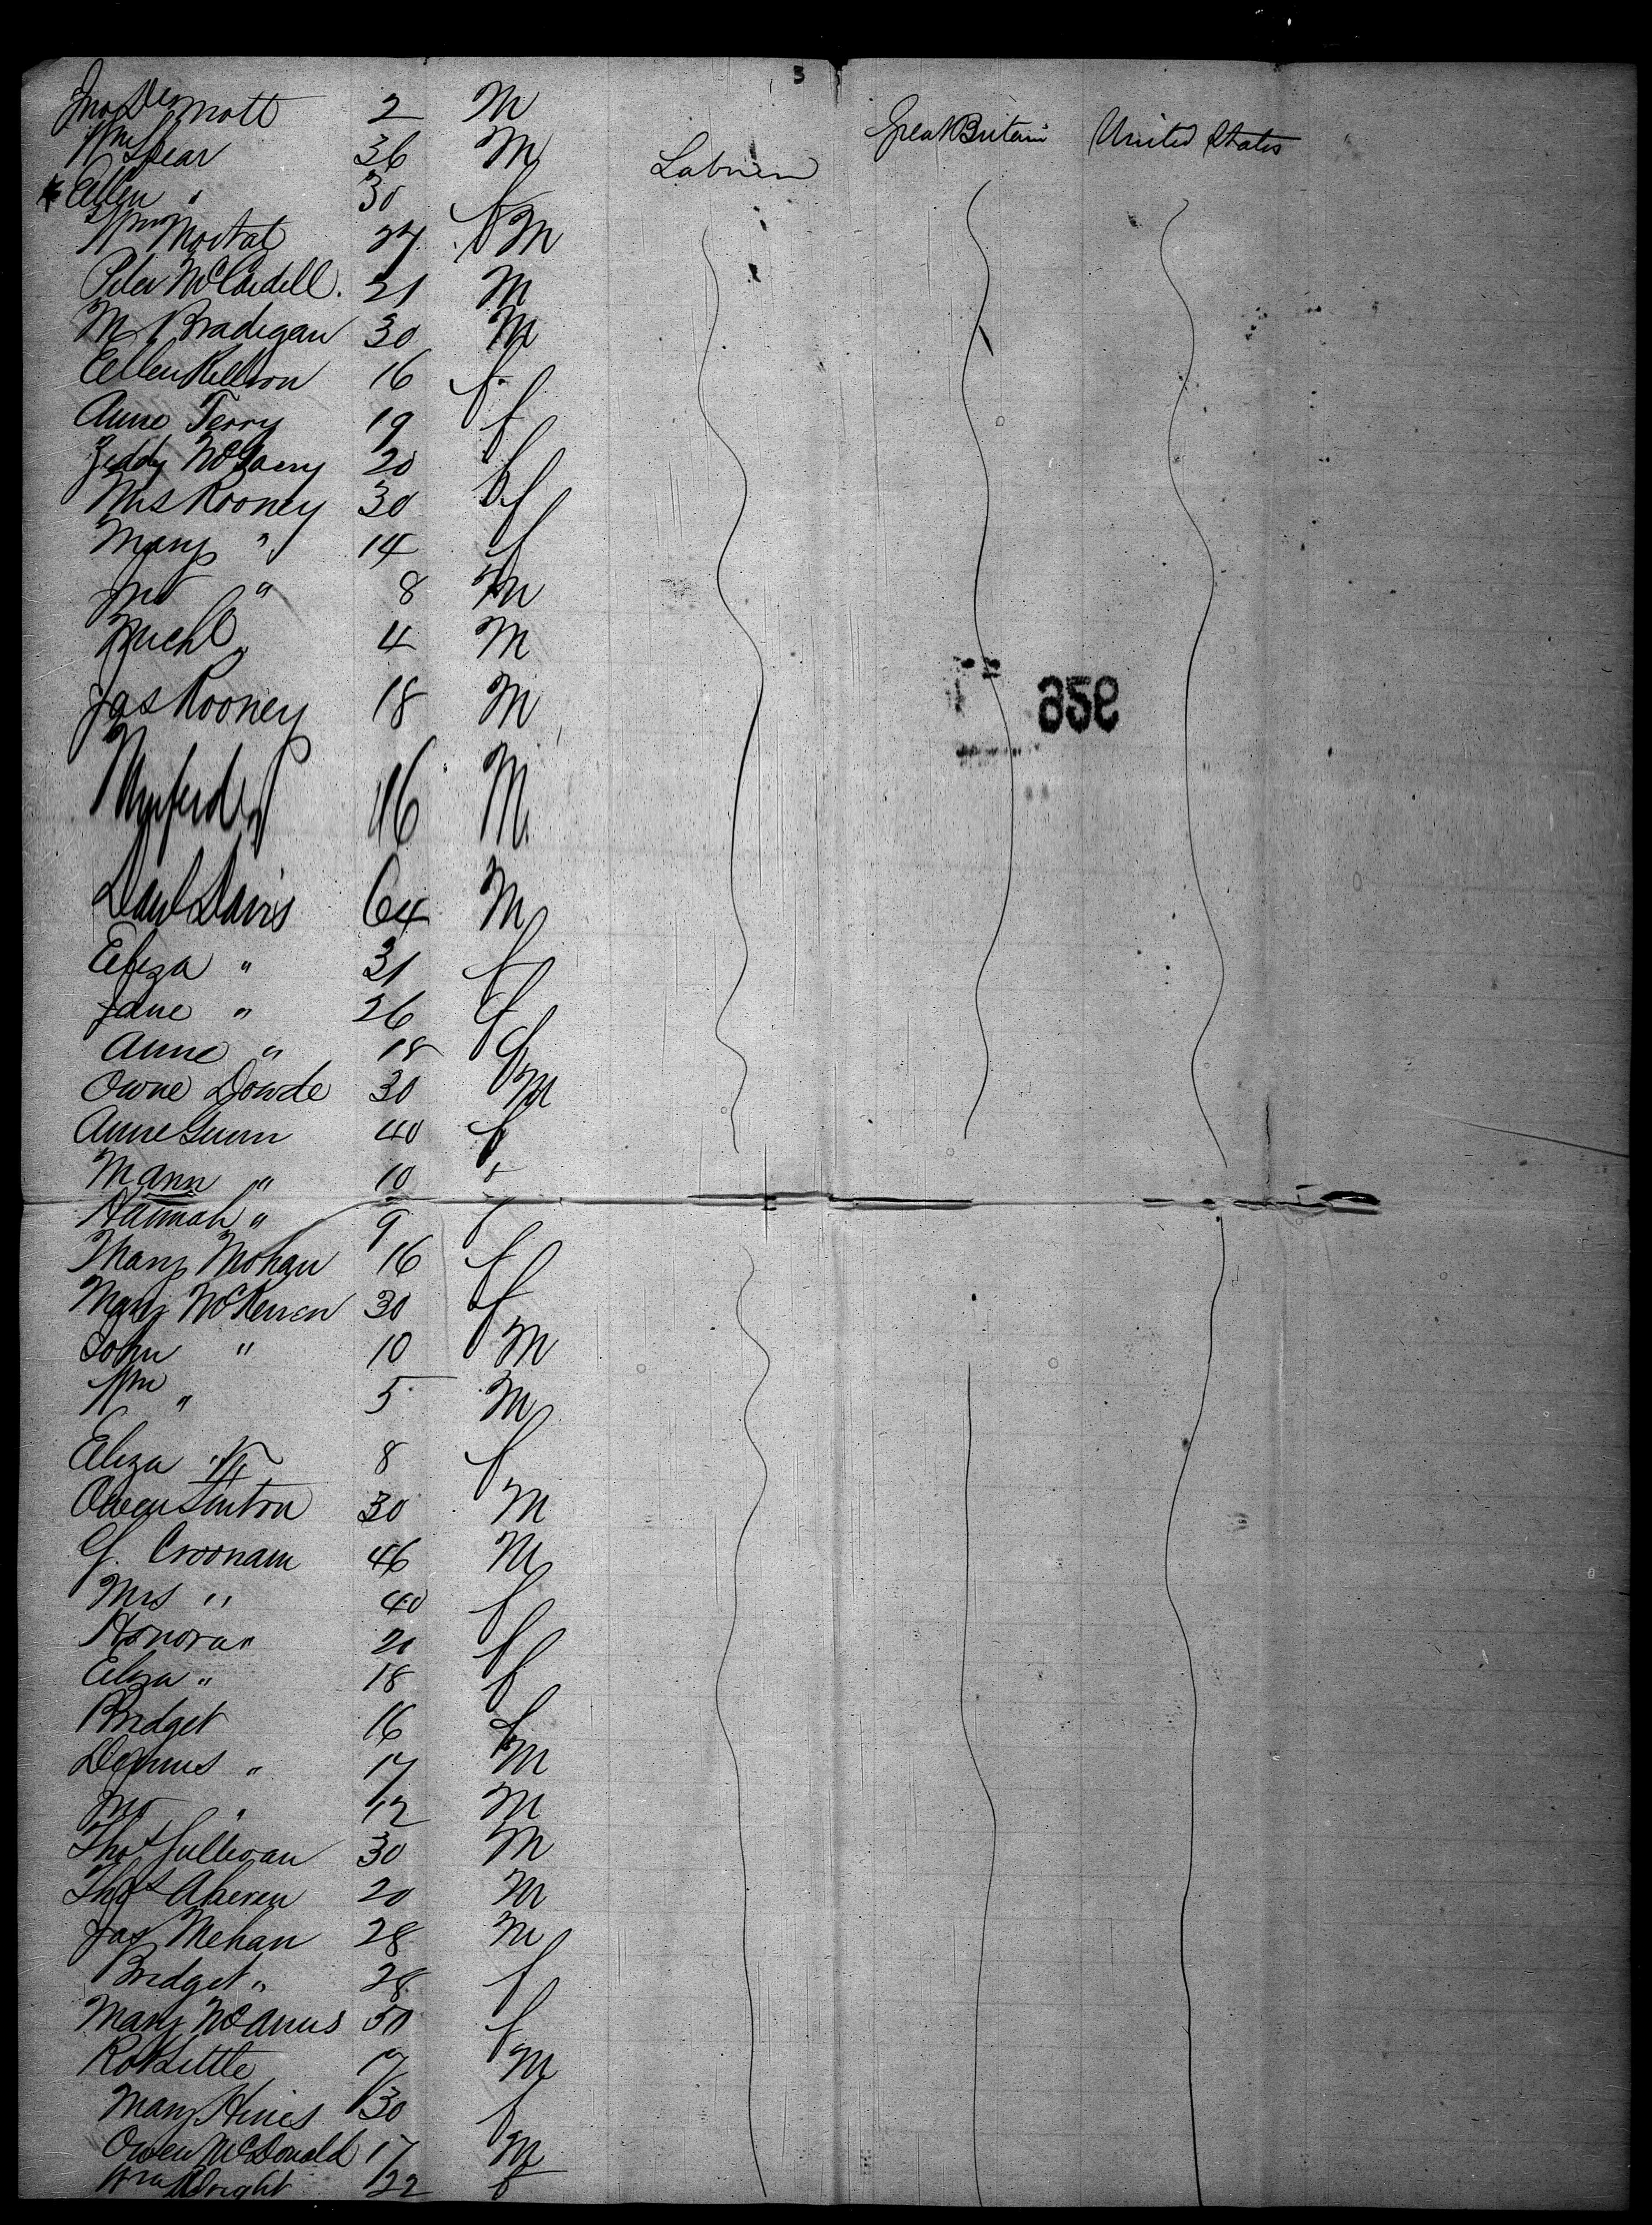 3
Jno DerMott 2 M Great Britain United States
Wm Spear 36 M Laborer
Ellen " 30 f
Wm Mortal 27 M
Peter McCardell. 21 M
M Bradigan 30 M
Ellen 16 f
Anne Terry 19 f
20 f
Mrs Rooney 30 f
Mary " 14 f
Jno " 8 M
Michl " 4 M
Jas Rooney 18 M
16 M
Danl Davis 64 M
Eliza " 31 f
Jane " 26 f
Anne " 18 f
Owne Dowde 30 M
Anne Gunn 40 f
Mann " 10 f
Hannah " 9 f
Mary Mohan 16 f
Mary McKernen 30 f
John " 10 M
Wm " 5 M
Eliza 8 f
Owen Linton 30 M
Croonam 46 M
Mrs " 40 f
Honora " 20 f
Eliza " 18 f
Bridget 16 f
Dennis " 17 M
Jno " 12 M
Thos Sullivan 30 M
Thos Aheren 20 M
Jas Mehan 28 M
Bridget " 28 f
Mary McAnus 50 f
Robt Little 17 M
Mary Hines 30 f
Owen McDonald 17 M
Wright 22 f